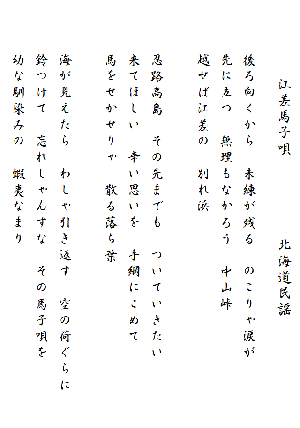 江差馬子唄　北海道民謡
後ろ向くから　未練が残る　のこりゃ涙が
先に立つ　無理もなかろう　中山峠
越せば江差の　別れ浜
忍路高島　その先までも　ついていきたい
来てほしい　辛い思いを　手綱にこめて
馬をせかせりゃ　散る落ち葉
海が見えたら　わしゃ引き返す　空の荷ぐらに
鈴つけて　忘れしゃんすな　その馬子唄を
幼な馴染みの　蝦夷なまり